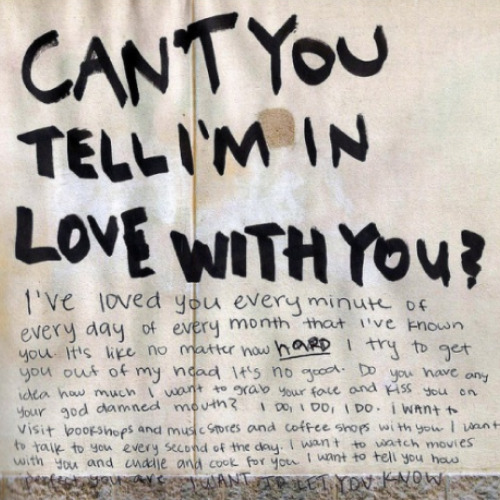 CAN'T YOU
TELL I'M IN
LOVE WITH YOU?
I've loved you every minute of
every day of every month that i've known
you. It's like no matter how hARD I try to get
you out of my head It's no good. Do you have any
idea how much I want to grab your face and kiss you on
your god damned mouth? I DO, I DO, I DO. i WANt to
visit bookshops and music stores and coffee shops with you I want
to talk to you every second of the day. I want to watch movies
with you and cuddle and cook for you I want to tell you how
perfect you are I WANT TO LET YOU KNOW